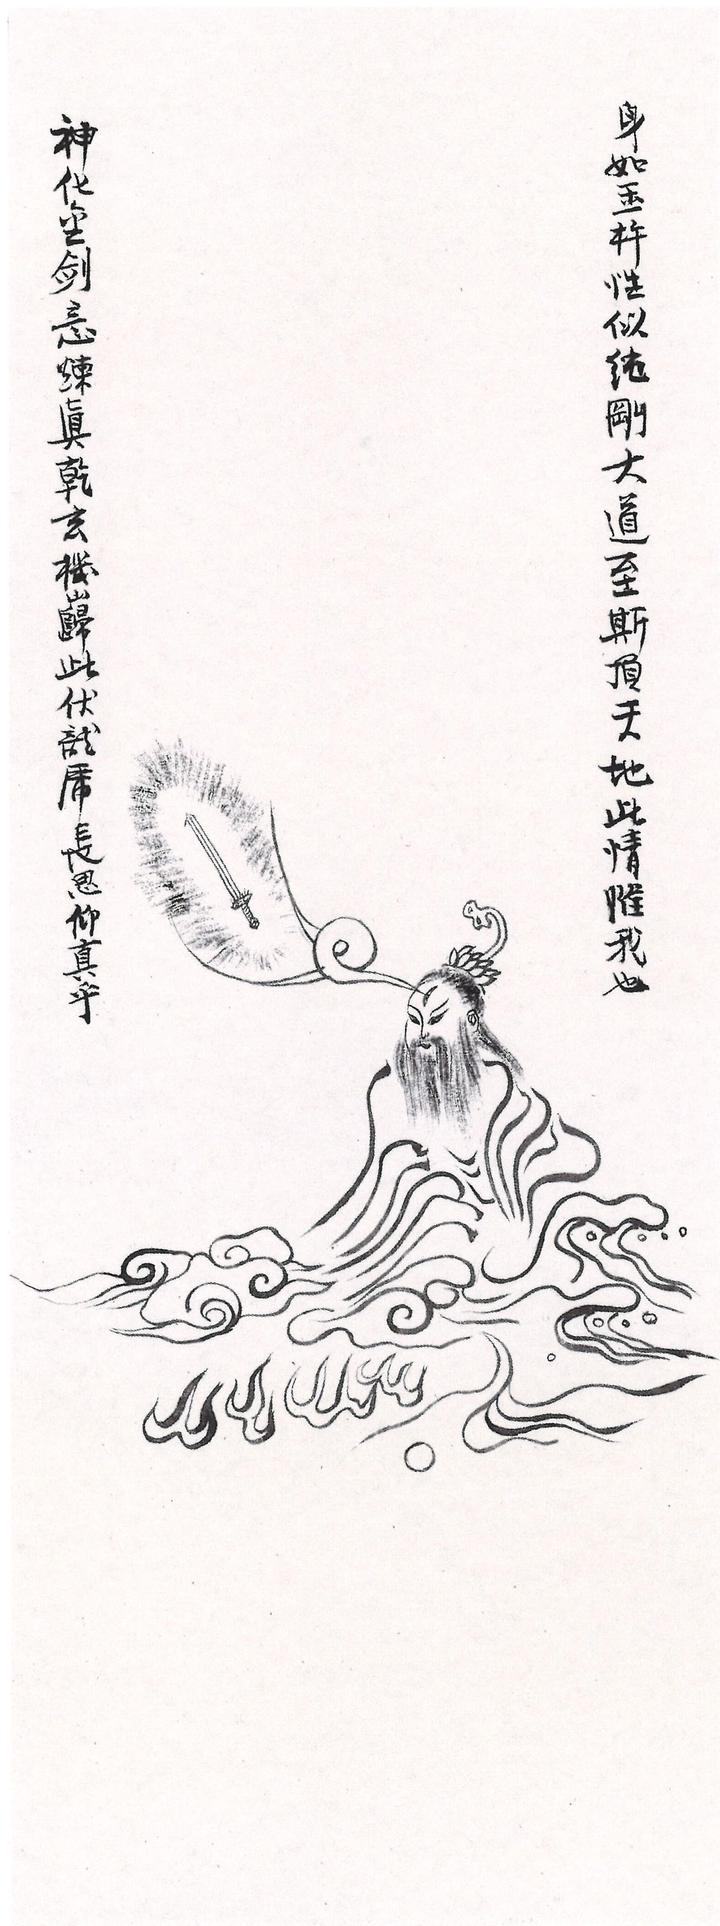 身如玉杵性似純剛大道至斯頂天地此情惟我也
神化金剑意煉眞乾玄機歸此伏龍虎長思仰真乎